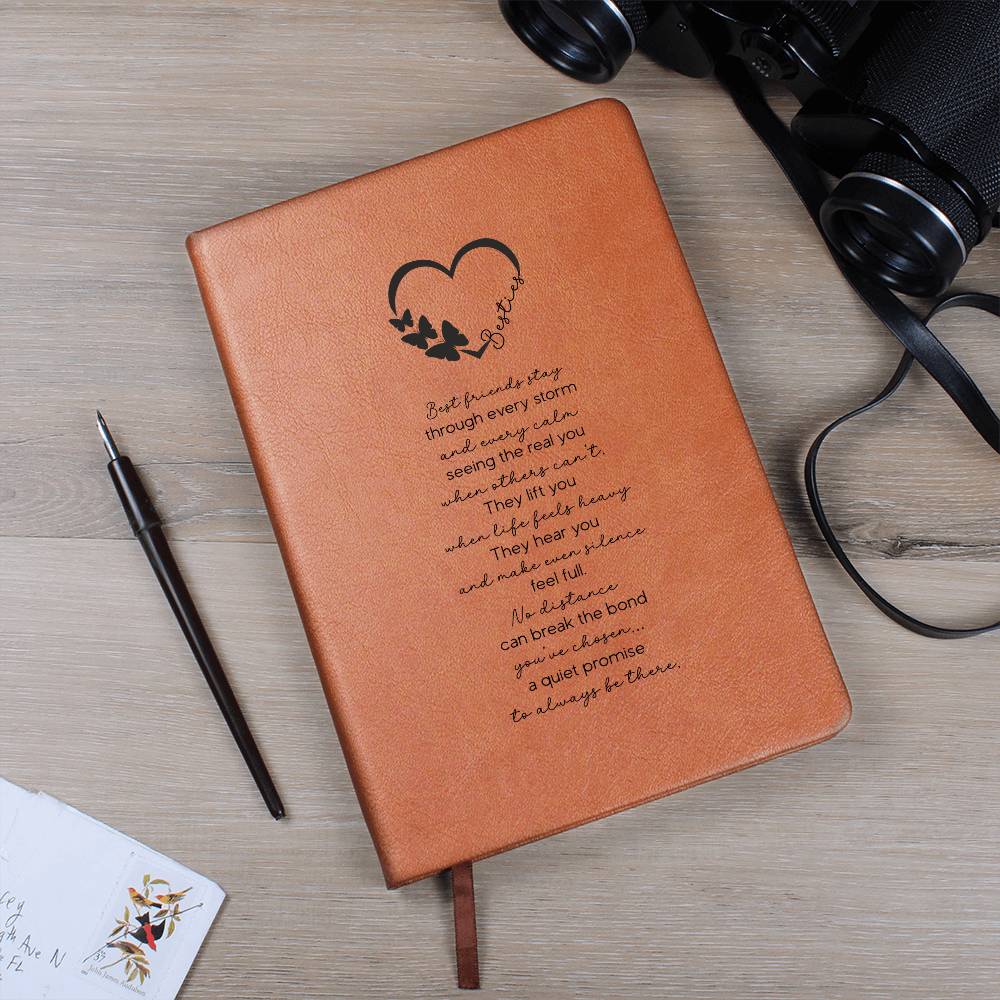 Besties
Best friends stay
through every storm
and every calm
seeing the real you
when others can't.
They lift you
when life feels heavy
They hear you
and make even silence
feel full.
No distance
can break the bond
you've chosen...
a quiet promise
to always be there.
Ave N
FL
37
John James Audubon